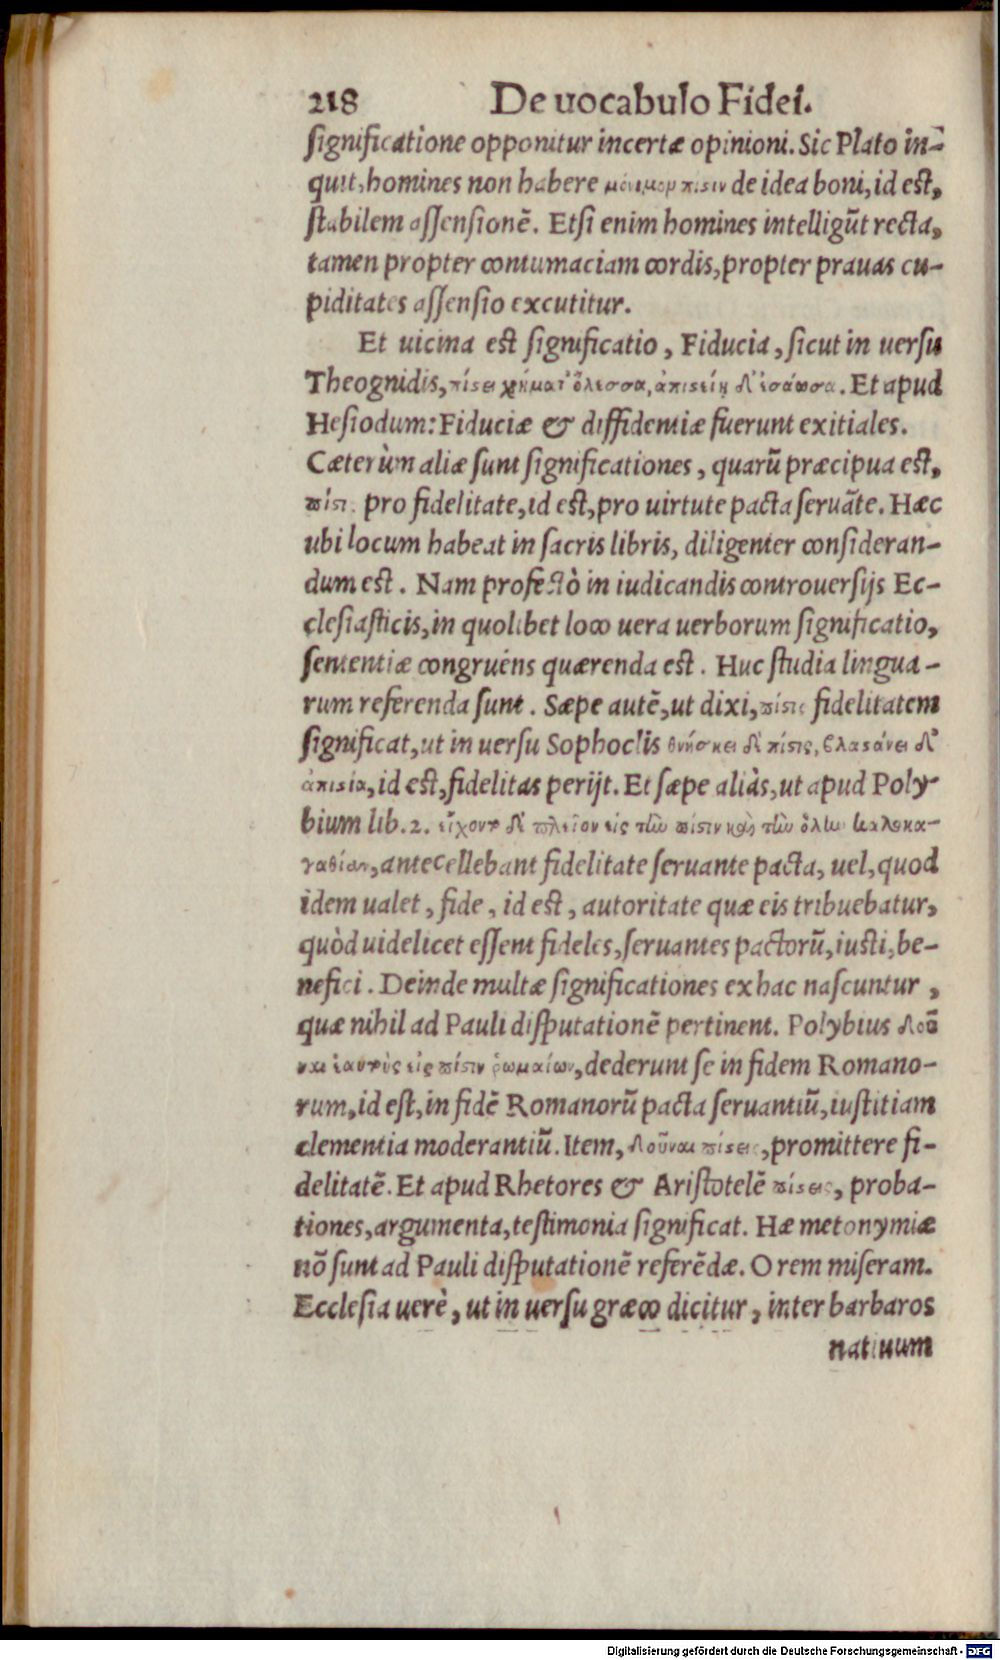 218 De uocabulo Fidei.
ſignificatione opponitur incertæ opinioni. Sic Plato in-
quit, homines non habere μόνιμορ πίστιν de idea boni, id est,
ſtabilem aſſenſionẽ. Etſi enim homines intelligũt recta,
tamen propter contumaciam cordis, propter prauas cu-
piditates aſſenſio excutitur.
Et uicina est ſignificatio, Fiducia, ſicut in uerſu
Theognidis, πίστει χρήματ' ὄλεσσα, ἀπιστείῃ δ' ἐσάωσα. Et apud
Heſiodum: Fiduciæ & diffidentiæ fuerunt exitiales.
Cæterùm aliæ ſunt ſignificationes, quarũ præcipua est,
πίστις pro fidelitate, id est, pro uirtute pacta ſeruãte. Hæc
ubi locum habeat in ſacris libris, diligenter conſideran-
dum est. Nam profectò in iudicandis controuerſijs Ec-
cleſiaſticis, in quolibet loco uera uerborum ſignificatio,
ſententiæ congruens quærenda est. Huc ſtudia lingua-
rum referenda ſunt. Sæpe autẽ, ut dixi, πίστις fidelitatem
ſignificat, ut in uerſu Sophoclis θνήσκει δὲ πίστις, βλαστάνει δ'
ἀπιστία, id est, fidelitas perijt. Et ſæpe aliàs, ut apud Poly-
bium lib. 2. εἶχον δὲ πλεῖον εἰς τὴν πίστιν καὶ τὴν ὅλην καλοκα-
γαθίαν, antecellebant fidelitate ſeruante pacta, uel, quod
idem ualet, fide, id est, autoritate quæ eis tribuebatur,
quòd uidelicet eſſent fideles, ſeruantes pactorũ, iusti, be-
nefici. Deinde multæ ſignificationes ex hac naſcuntur,
quæ nihil ad Pauli diſputationẽ pertinent. Polybius δοῦ
ναι ἑαυτοὺς εἰς πίστιν ῥωμαίων, dederunt ſe in fidem Romano-
rum, id eſt, in fidẽ Romanorũ pacta ſeruantiũ, iuſtitiam
clementia moderantiũ. Item, δοῦναι πίστεις, promittere fi-
delitatẽ. Et apud Rhetores & Ariſtotelẽ πίστεις, proba-
tiones, argumenta, teſtimonia ſignificat. Hæ metonymiæ
nõ ſunt ad Pauli diſputationẽ referẽdæ. O rem miſeram.
Eccleſia uerè, ut in uerſu græco dicitur, inter barbaros
natiuum
Digitalisierung gefördert durch die Deutsche Forschungsgemeinschaft - DFG